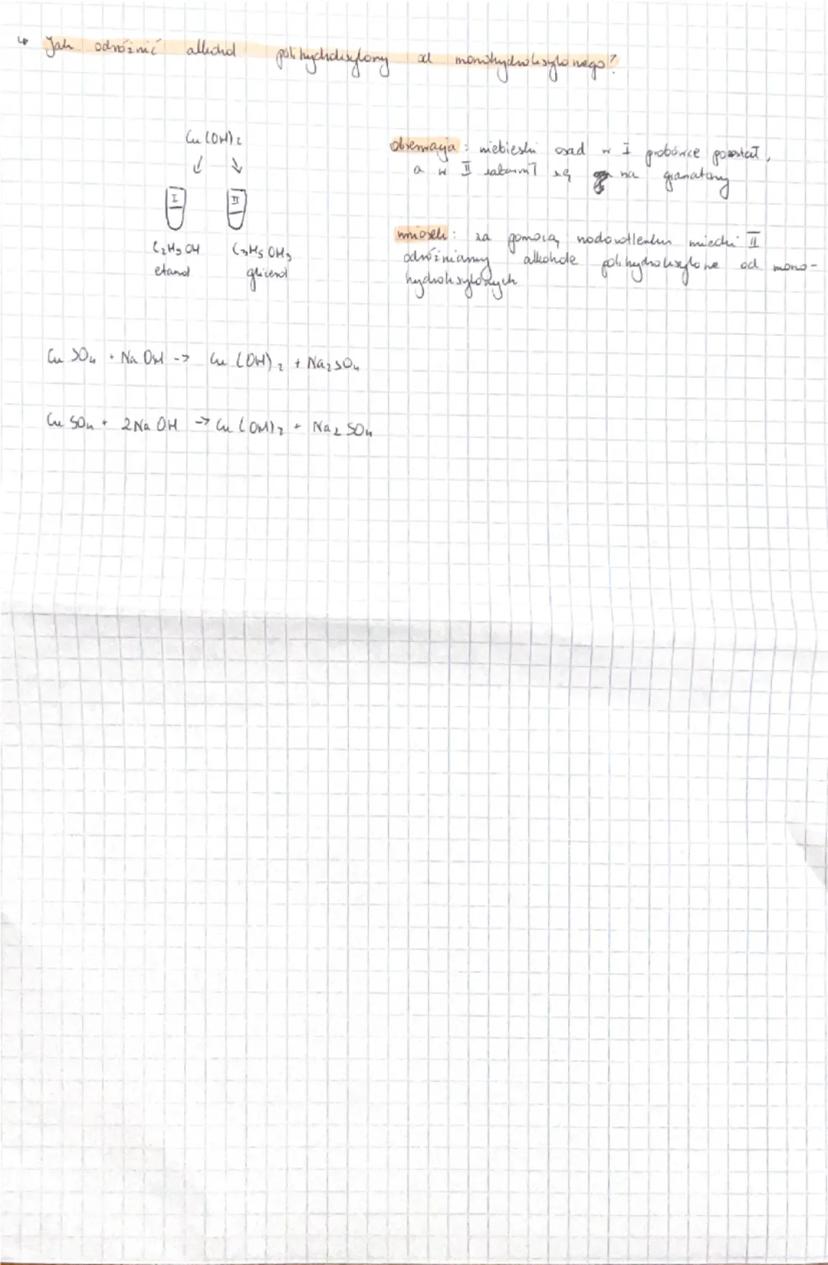 ↳ Jak odróżnić alkohol polihydroksylowy od monohydroksylowego?
Cu(OH)₂
I II
C₂H₅OH C₃H₅OH₃
etanol glicerol
obserwacja: niebieski osad w I probówce pozostał,
a w II zabarwił się na granatowy
wniosek: za pomocą wodorotlenku miedzi II
odróżniamy alkohole polihydroksylowe od mono-
hydroksylowych
CuSO₄ + NaOH -> Cu(OH)₂ + Na₂SO₄
CuSO₄ + 2NaOH -> Cu(OH)₂ + Na₂SO₄